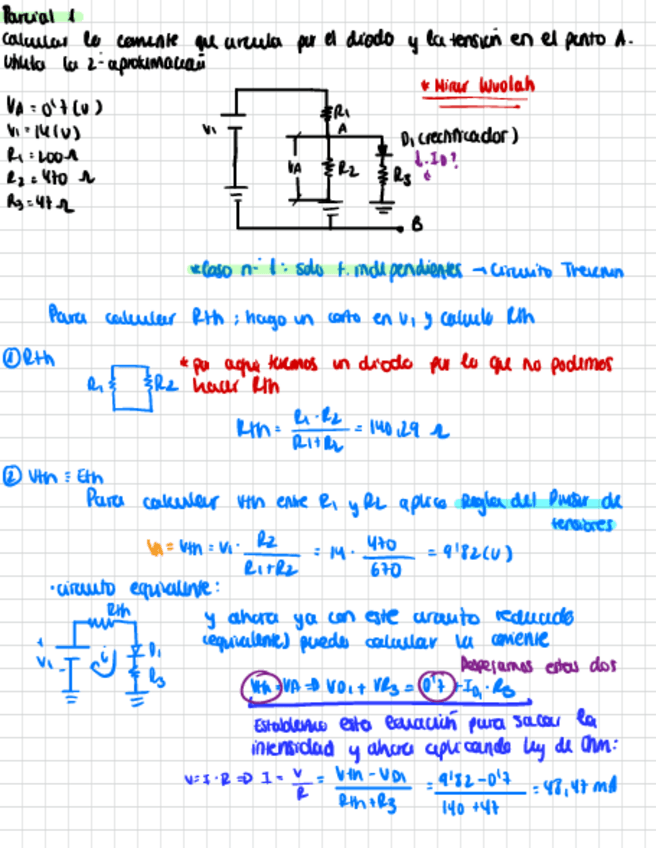 Parcial 1
Calcular la corriente que circula por el diodo y la tensión en el punto A.
Utiliza la 2ª aproximación
* Mirar Wuolah
VA = 0'7 (V)
V1 = 14 (V)
R1 = 200 Ω
R2 = 470 Ω
R3 = 47 Ω
V1
R1
A
VA
R2
D1 (rectificador)
↓ ID?
R3
B
* Caso nº 1: solo f. independientes → Circuito Thevenin
Para calcular Rth; hago un corto en V1 y calculo Rth
① Rth
R1
R2
* por aquí tenemos un diodo por lo que no podemos
hacer Rth
Rth = R1 · R2 / R1 + R2 = 140,29 Ω
② Vth ≡ Eth
Para calcular Vth entre R1 y R2 aplico Regla del Divisor de
tensiones
VA = Vth = V1 · R2 / R1 + R2 = 14 · 470 / 670 = 9'82 (V)
· circuito equivalente:
Rth
+
V1
-
i
D1
R3
y ahora ya con este circuito reducido
(equivalente) puedo calcular la corriente
Despejamos estas dos
Vth = VA ⇒ VD1 + VR3 = 0'7 + ID1 · R3
Establezco esta Ecuación para sacar la
intensidad y ahora aplicando Ley de Ohm:
V = I · R ⇒ I = V / R = Vth - VD1 / Rth + R3 = 9'82 - 0'7 / 140 + 47 = 48,47 mA